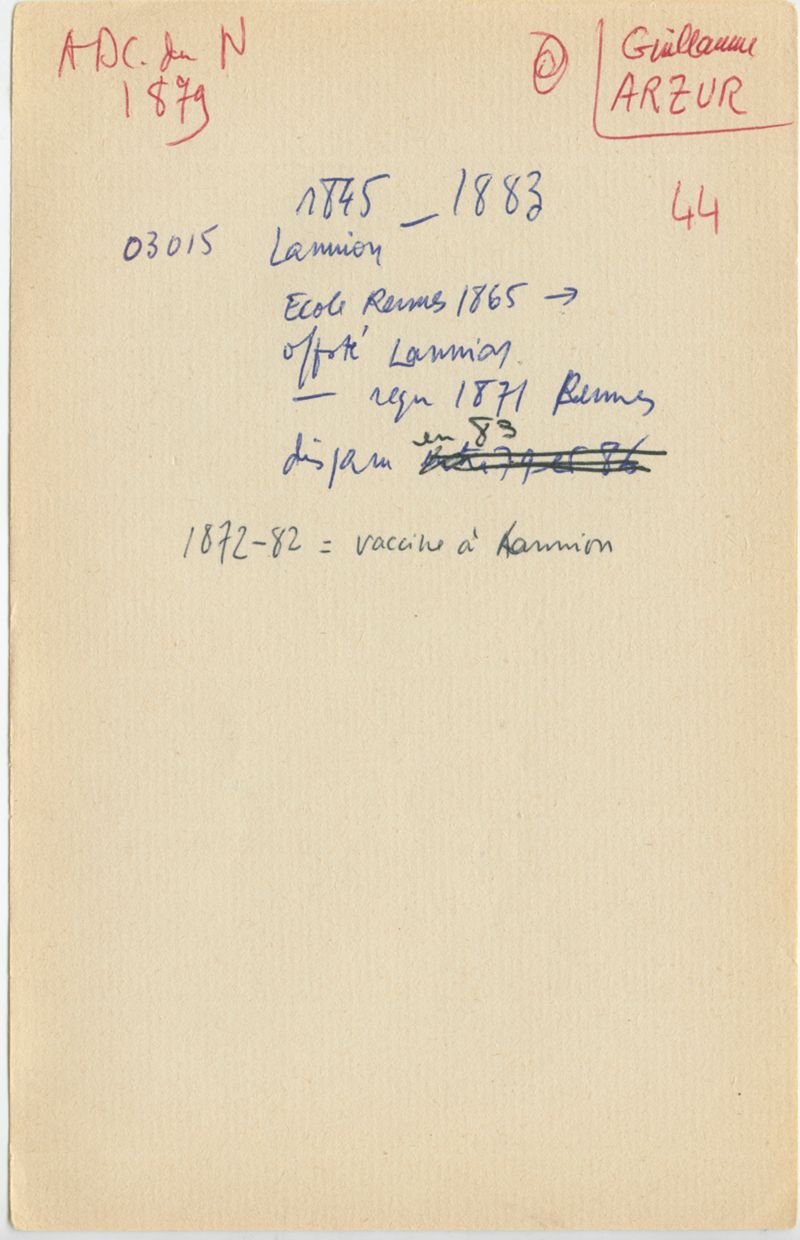 A.DC. du N
1879
@
Guillaume
ARZUR
44
1845 _ 1883
03015 Lannion
Ecole Rennes 1865 →
off té Lannion.
— reçu 1871 Rennes
en 83
disparu entre 79 et 86
1872-82 = vaccine à Lannion